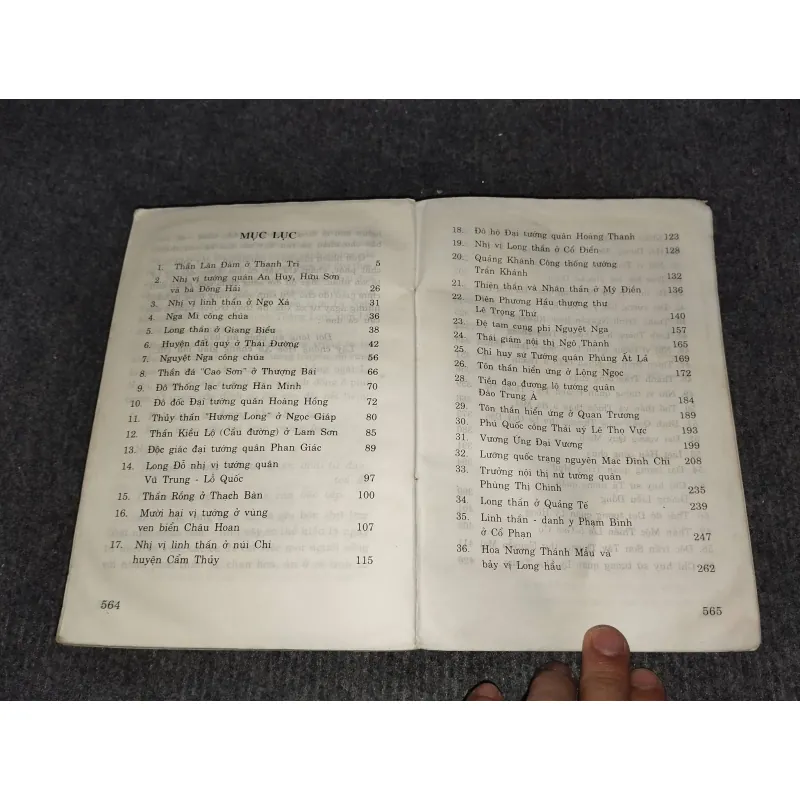 MỤC LỤC
1. Thần Lân Đàm ở Thanh Trì 5
2. Nhị vị tướng quân An Huy, Hữu Sơn
và bà Đông Hải 26
3. Nhị vị linh thần ở Ngo Xá 31
4. Nga Mi công chúa 36
5. Long thần ở Giang Biểu 38
6. Huyện đất quý ở Thái Đương 42
7. Nguyệt Nga công chúa 56
8. Thần đá "Cao Sơn" ở Thượng Bái 66
9. Đô Thống lạc tướng Hán Minh 70
10. Đô đốc Đại tướng quân Hoàng Hồng 72
11. Thủy thần "Hương Long" ở Ngọc Giáp 80
12. Thần Kiều Lộ (Cầu đường) ở Lam Sơn 85
13. Độc giác đại tướng quân Phan Giác 89
14. Long Đỗ nhị vị tướng quân
Vũ Trung - Lỗ Quốc 97
15. Thần Rồng ở Thạch Bàn 100
16. Mười hai vị tướng ở vùng
ven biển Châu Hoan 107
17. Nhị vị linh thần ở núi Chi
huyện Cẩm Thủy 115
564
18. Đô hộ Đại tướng quân Hoàng Thanh 123
19. Nhị vị Long thần ở Cổ Điển 128
20. Quảng Khánh Công thống tướng
Trần Khánh 132
21. Thiên thần và Nhân thần ở Mỹ Điền 136
22. Diên Phương Hầu thượng thư
Lê Trọng Thứ 140
23. Đệ tam cung phi Nguyệt Nga 157
24. Thái giám nội thị Ngô Thành 165
25. Chỉ huy sứ Tướng quân Phùng Ất Lã 169
26. Tôn thần hiển ứng ở Lộng Ngọc 172
28. Tiền đạo đương lộ tướng quân
Đào Trung Á 184
29. Tôn thần hiển ứng ở Quan Trương 189
30. Phú Quốc công Thái uý Lê Thọ Vực 193
31. Vương Ứng Đại Vương 199
32. Lưỡng quốc trạng nguyên Mạc Đĩnh Chi 208
33. Trưởng nội thị nữ tướng quân
Phùng Thị Chinh 235
34. Long thần ở Quảng Tế 239
35. Linh thần - danh y Phạm Bình
ở Cổ Phan 247
36. Hoa Nương Thánh Mẫu và
bảy vị Long hầu 262
565